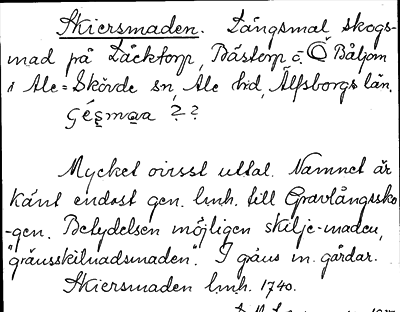 Skiersmaden. Långsmal skogs-
mad på Läcktorp, Båstorp o. Ö Båljom
i Ale-Skövde sn, Ale hd, Älfsborgs län.
Gésmøa ? ?
Mycket ovisst uttal. Namnet är
känt endast gen. lmh. till Gravlångssko
-gen. Betydelsen möjligen skilje-maden,
"gränsskilnadsmaden". I gräns m. gårdar.
Skiersmaden lmh. 1740.